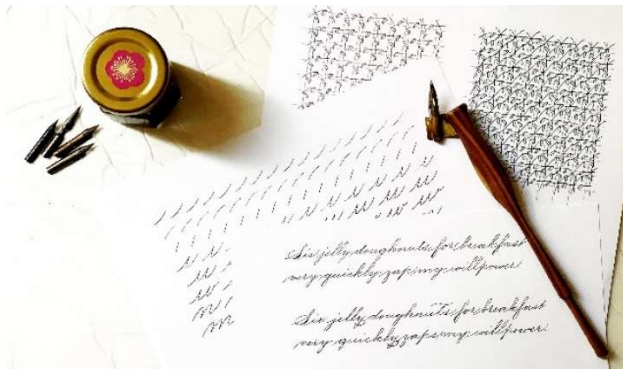 Six jelly doughnuts for breakfast
very quickly zap my willpower!
Six jelly doughnuts for breakfast
very quickly zap my willpower!